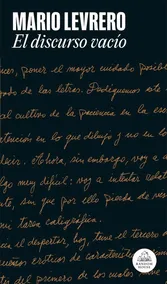 MARIO LEVRERO
El discurso vacío
poner el mayor cuidado posible
de las letras. Dediquemos
al cultivo de la paciencia
atención en lo que dibujo y no en
Ahora, sin embargo, voy a
algo muy difícil: voy a intentar
sentido, sin que ello pueda
mi tarea caligráfica.
el despertar, hoy, tuve el tercero
eróticos de características
del primero de los cuales
RANDOM HOUSE